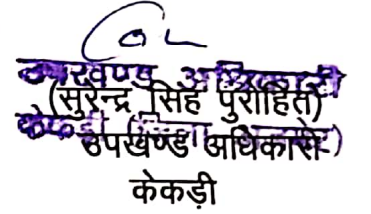 उपखण्ड अधिकारी
(सुरेन्द्र सिंह पुरोहित)
उपखण्ड अधिकारी
केकड़ी